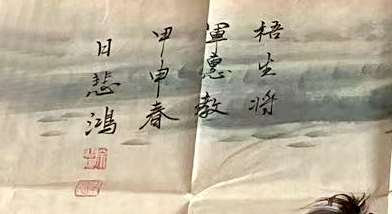 梧生将
軍惠教
甲申春
日悲鴻